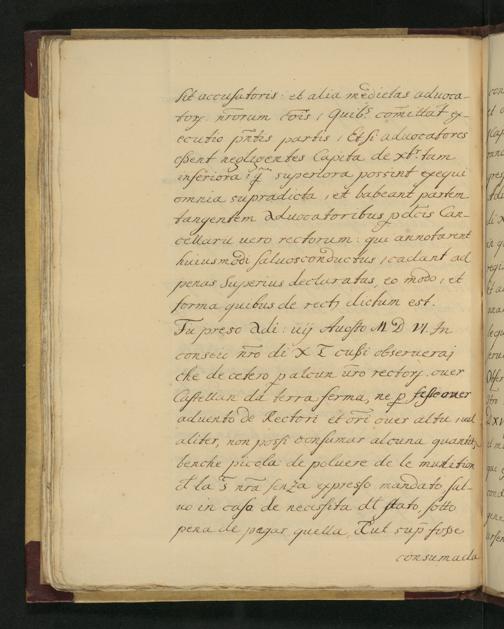 sit accusatoris: et alia medietas aduoca-
tory. nrorum cois, Quibs. comittat ex-
ecutio pntis partis, Et si aduocatores
essent negligentes Capita de Xbs. tam
inferiora q superiora possint exequi
omnia supradicta, et habeant partem
tangentem Aduocatoribus pdctis Can-
cellarii uero rectorum: qui annotarent
huiusmodi saluosconductus, cadant ad
penas superius declaratas, eo modo, et
forma quibus de rect. dictum est.
Fu preso Adi: iiij Augsto M D VI. In
conseio nro di X
che de cetero p alcun nro rectory. ouer
Castellan da terra ferma, ne p feste ouer
aduento de Rectori et ori ouer altri, uel
aliter, non possi consumar alcuna quantita
benche picola de poluere de le munition
senza expresso mandato sal-
uo in caso de necessita dl stato, sotto
pena de pagar quella, sup fosse
consumada